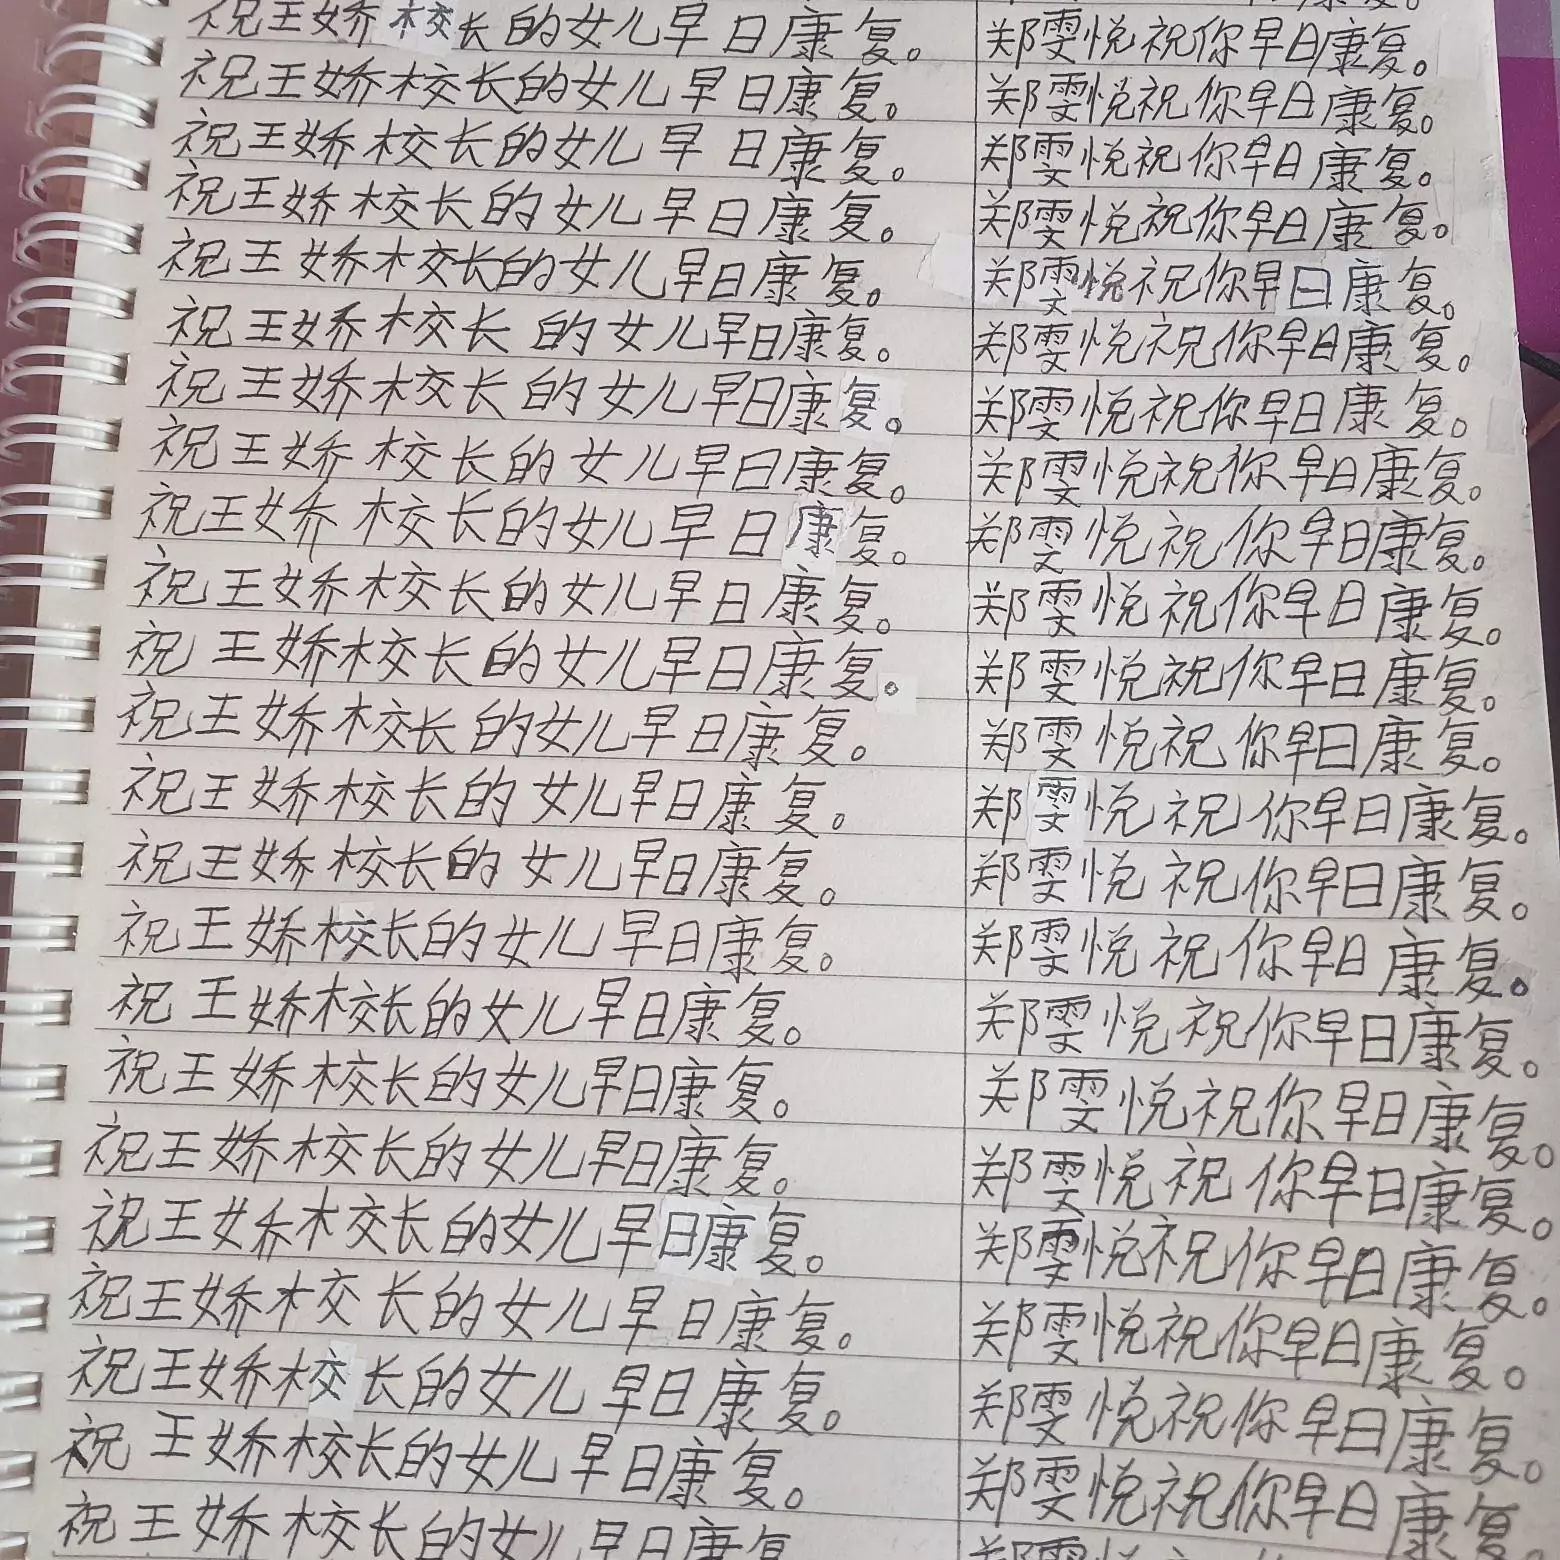 祝王娇校长的女儿早日康复。 郑雯悦祝你早日康复。
祝王娇校长的女儿早日康复。 郑雯悦祝你早日康复。
祝王娇校长的女儿早日康复。 郑雯悦祝你早日康复。
祝王娇校长的女儿早日康复。 郑雯悦祝你早日康复。
祝王娇校长的女儿早日康复。 郑雯悦祝你早日康复。
祝王娇校长的女儿早日康复。 郑雯悦祝你早日康复。
祝王娇校长的女儿早日康复。 郑雯悦祝你早日康复。
祝王娇校长的女儿早日康复。 郑雯悦祝你早日康复。
祝王娇校长的女儿早日康复。 郑雯悦祝你早日康复。
祝王娇校长的女儿早日康复。 郑雯悦祝你早日康复。
祝王娇校长的女儿早日康复。 郑雯悦祝你早日康复。
祝王娇校长的女儿早日康复。 郑雯悦祝你早日康复。
祝王娇校长的女儿早日康复。 郑雯悦祝你早日康复。
祝王娇校长的女儿早日康复。 郑雯悦祝你早日康复。
祝王娇校长的女儿早日康复。 郑雯悦祝你早日康复。
祝王娇校长的女儿早日康复。 郑雯悦祝你早日康复。
祝王娇校长的女儿早日康复。 郑雯悦祝你早日康复。
祝王娇校长的女儿早日康复。 郑雯悦祝你早日康复。
祝王娇校长的女儿早日康复。 郑雯悦祝你早日康复。
祝王娇校长的女儿早日康复。 郑雯悦祝你早日康复。
祝王娇校长的女儿早日康复。 郑雯悦祝你早日康复。
祝王娇校长的女儿早日康复。 郑雯悦祝你早日康复
祝王娇校长的女儿早日康复 郑雯悦祝你早日